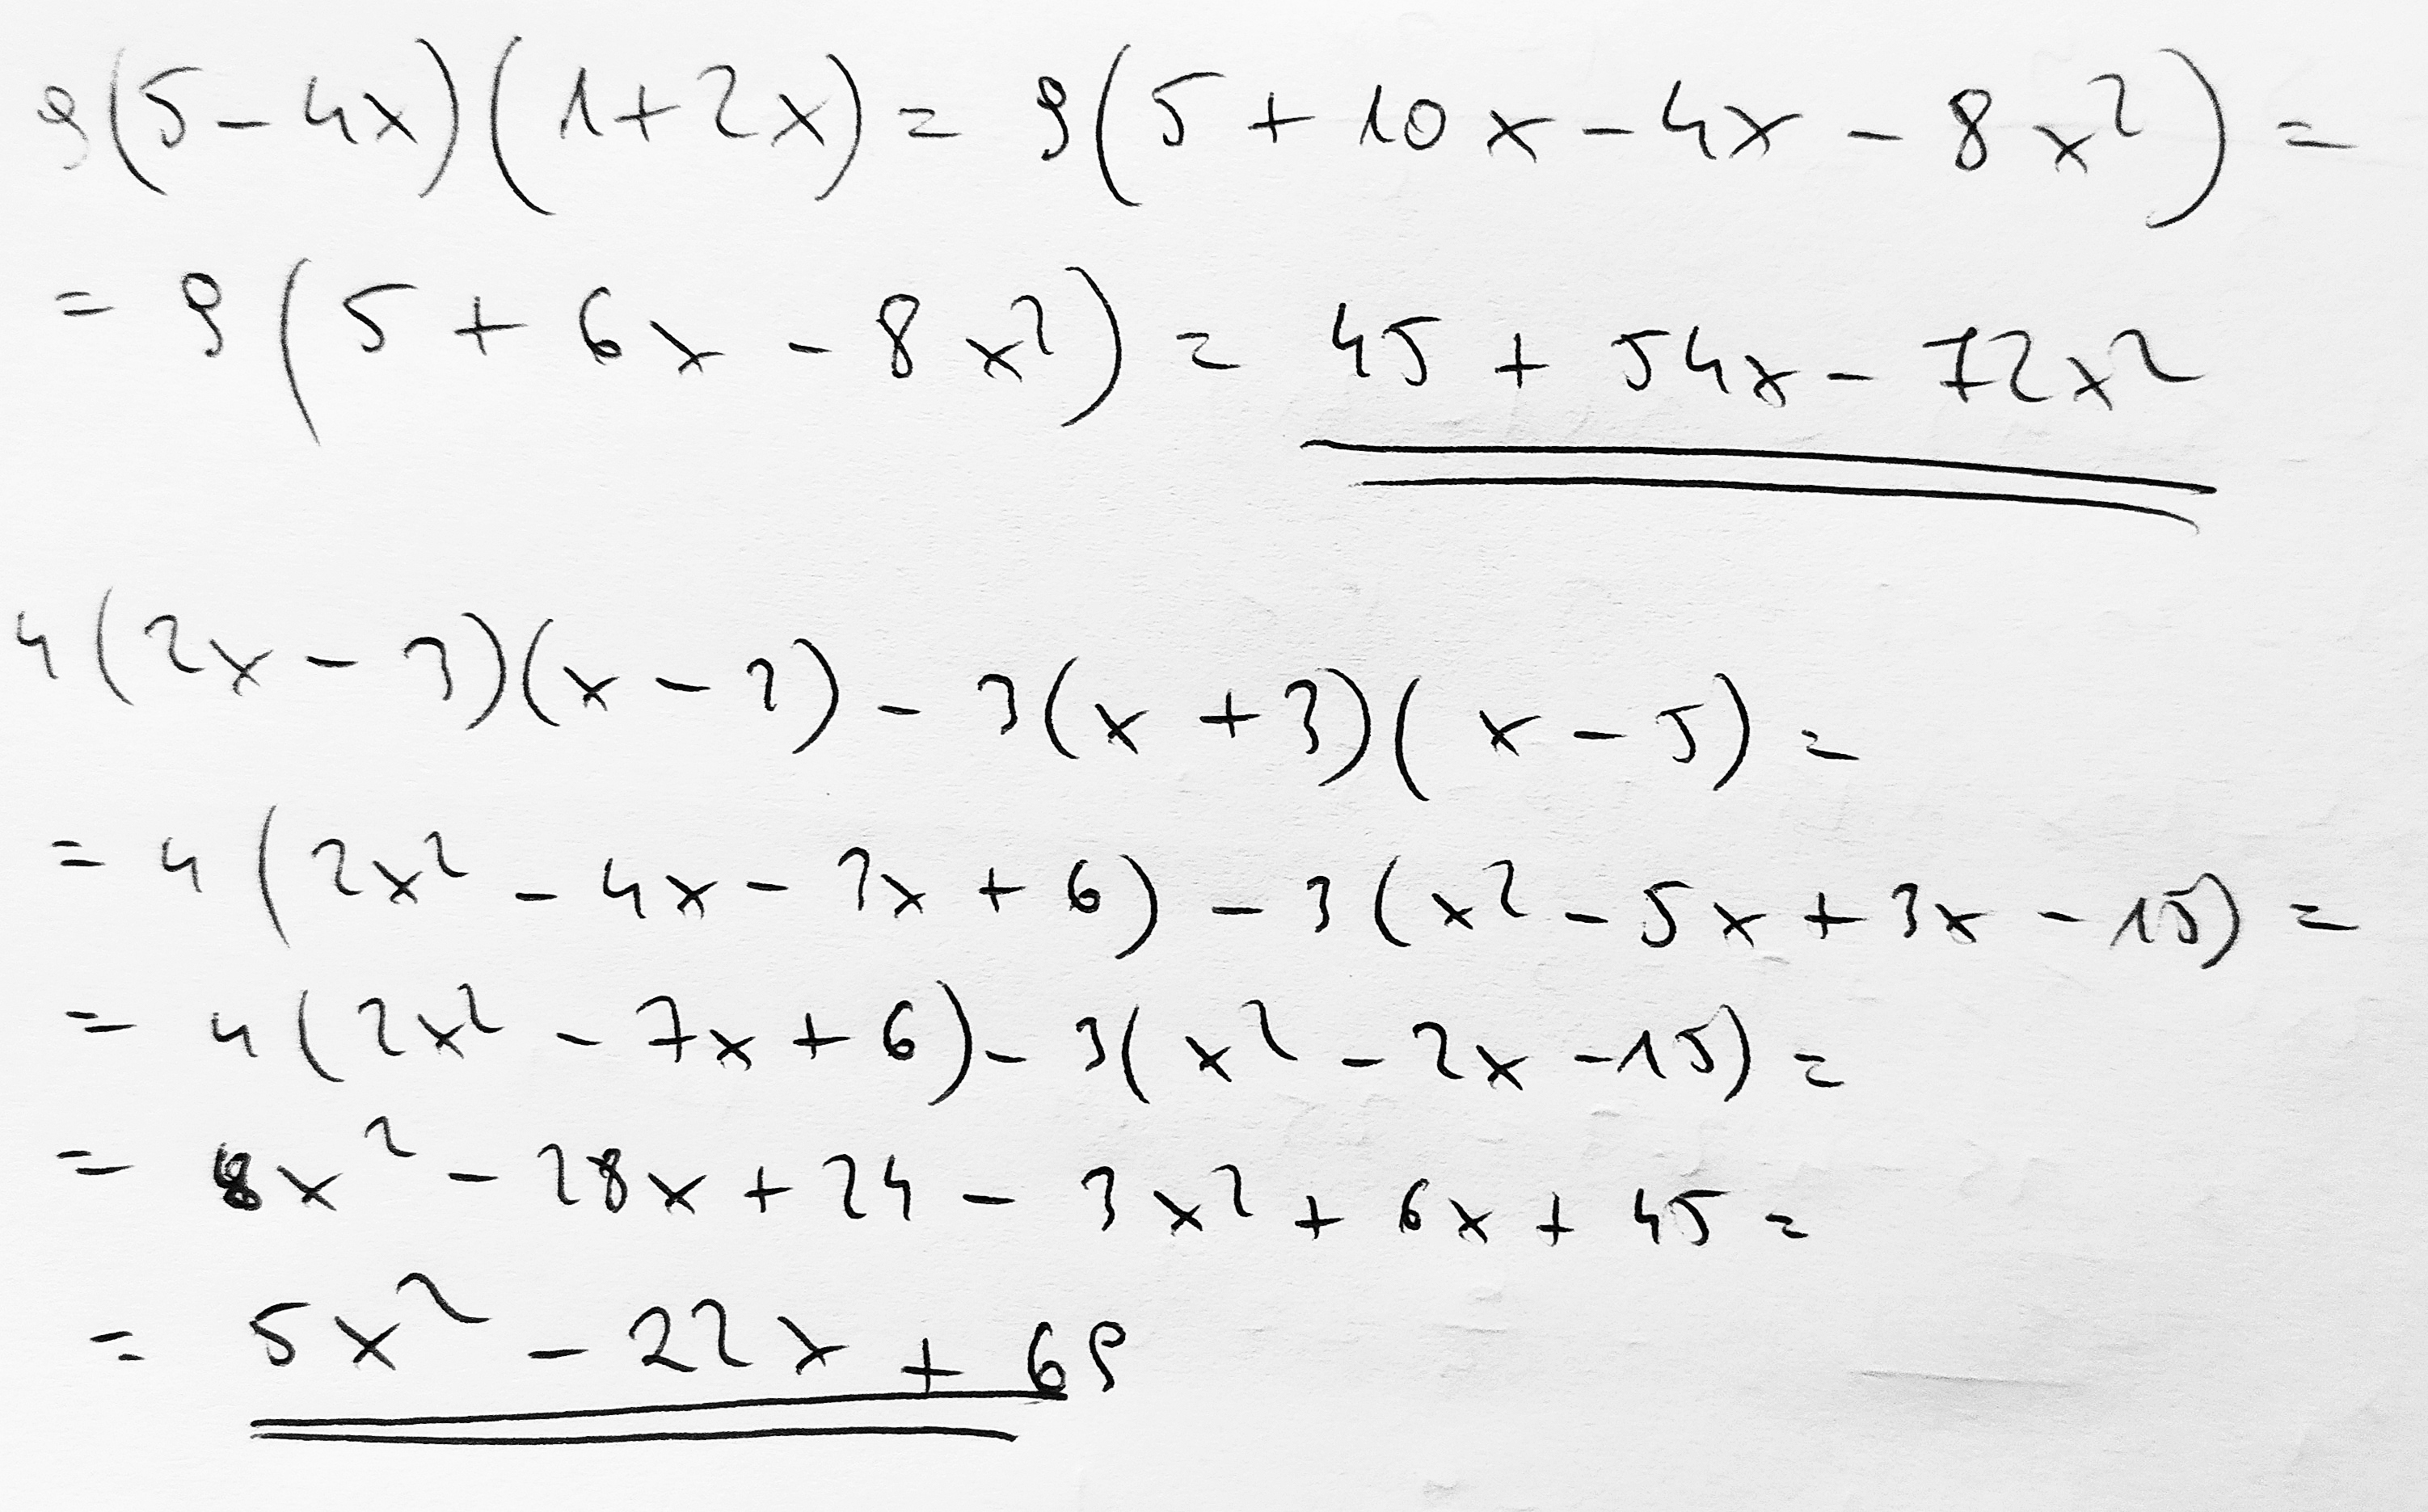 9(5-4x)(1+2x)= 9(5+10x-4x-8x²)=
= 9(5+6x-8x²)= 45+54x-72x²
4(2x-3)(x-2)-3(x+3)(x-5)=
= 4(2x²-4x-3x+6)-3(x²-5x+3x-15)=
= 4(2x²-7x+6)-3(x²-2x-15)=
= 8x²-28x+24-3x²+6x+45=
= 5x²-22x+69